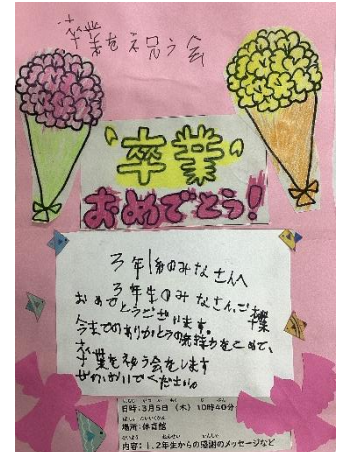 卒業を祝う会
卒業
おめでとう!
3年生のみなさんへ
3年生のみなさん、ご卒業
おめでとうございます。
今までのありがとうの気持ちをこめて、
卒業を祝う会をします
ぜひ
ください。
日時:3月5日(木)10時40分
場所:体育館
内容:1,2年生からの感謝のメッセージなど